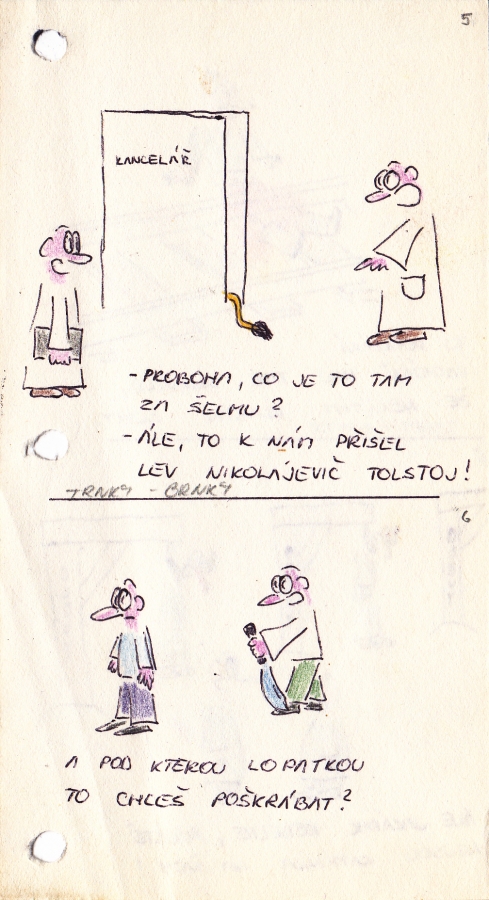 5
KANCELÁŘ
- PROBOHA, CO JE TO TAM
ZA ŠELMU?
- ÁLE, TO K NÁM PŘIŠEL
LEV NIKOLAJEVIČ TOLSTOJ!
TRNKY - BRNKY
6
A POD KTEROU LOPATKOU
TO CHCEŠ POŠKRÁBAT?